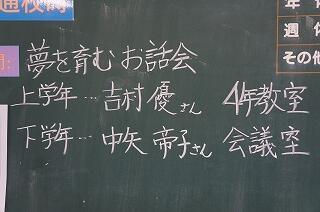 夢を育むお話会
上学年…吉村 優さん 4年教室
下学年…中矢 帝子さん 会議室
年
週
その他